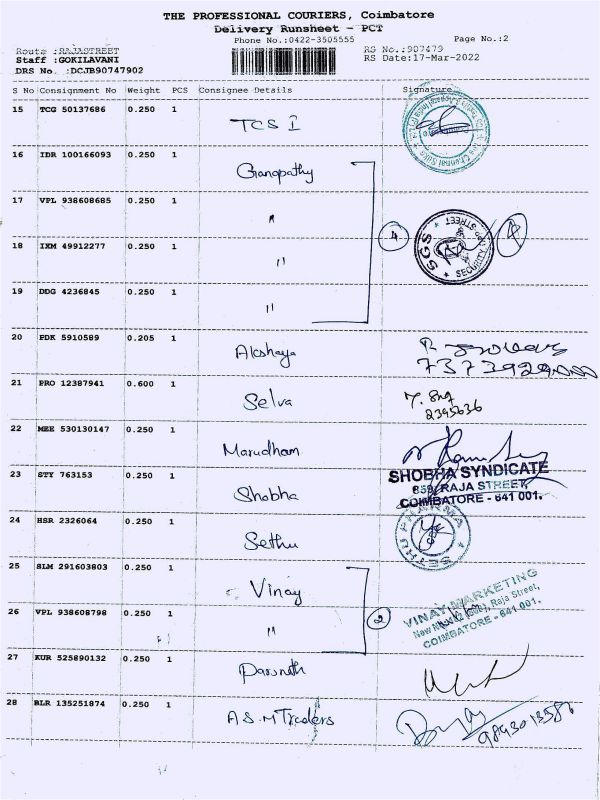 THE PROFESSIONAL COURIERS, Coimbatore
Delivery Runsheet - PCT
Phone No.:0422-3505555
Page No.:2
Route :RAJASTREET
RS No.:907479
Staff :GOKILAVANI
RS Date:17-Mar-2022
DRS No. :DCJB90747902
S No Consignment No Weight PCS Consignee Details Signature
15 TCG 50137686 0.250 1 TCS I
16 IDR 100166093 0.250 1 Ganapathy
17 VPL 938608685 0.250 1 "
4
SGS
SECURITY
STREET
18 IXM 49912277 0.250 1 "
19 DDG 4236845 0.250 1 "
20 PDK 5910589 0.205 1 Akshaya
21 PRO 12387941 0.600 1 Selva
2395636
22 MEE 530130147 0.250 1 Marudham
23 STY 763153 0.250 1 Shobha
SHOBHA SYNDICATE
859, RAJA STREET,
COIMBATORE - 641 001.
24 HSR 2326064 0.250 1 Sethu
SETHU PHARMA
25 SLM 291603803 0.250 1 Vinay
26 VPL 938608798 0.250 1 "
2
VINAY MARKETING
Raja Street,
COIMBATORE - 641 001.
27 KUR 525890132 0.250 1
28 BLR 135251874 0.250 1 A.S.M Traders